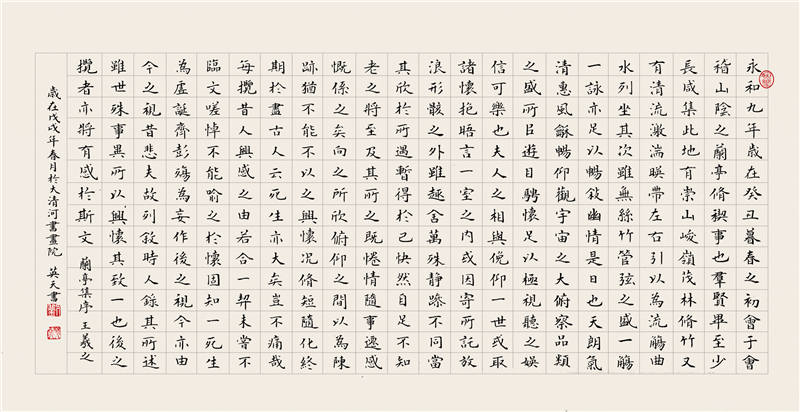 永和九年歲在癸丑暮春之初會于會
稽山陰之蘭亭脩禊事也羣賢畢至少
長咸集此地有崇山峻嶺茂林脩竹又
有清流激湍暎帶左右引以為流觴曲
水列坐其次雖無絲竹管弦之盛一觴
一詠亦足以暢敍幽情是日也天朗氣
清惠風龢暢仰觀宇宙之大俯察品類
之盛所㠯遊目騁懷足以極視聽之娛
信可樂也夫人之相與俛仰一世或取
諸懷抱晤言一室之内或因寄所託放
浪形骸之外雖趣舍萬殊静躁不同當
其欣於所遇暫得於己快然自足不知
老之將至及其所之既惓情隨事遷感
慨係之矣向之所欣俯仰之間以為陳
跡猶不能不以之興懷况脩短隨化終
期於盡古人云死生亦大矣豈不痛哉
每攬昔人興感之由若合一契未嘗不
臨文嗟悼不能喻之於懷固知一死生
為虛誕齊彭殤為妄作後之視今亦由
今之視昔悲夫故列敍時人錄其所述
雖世殊事異所以興懷其致一也後之
攬者亦將有感於斯文 蘭亭集序 王羲之
歲在戊戌年春月於大清河書畫院 英天書